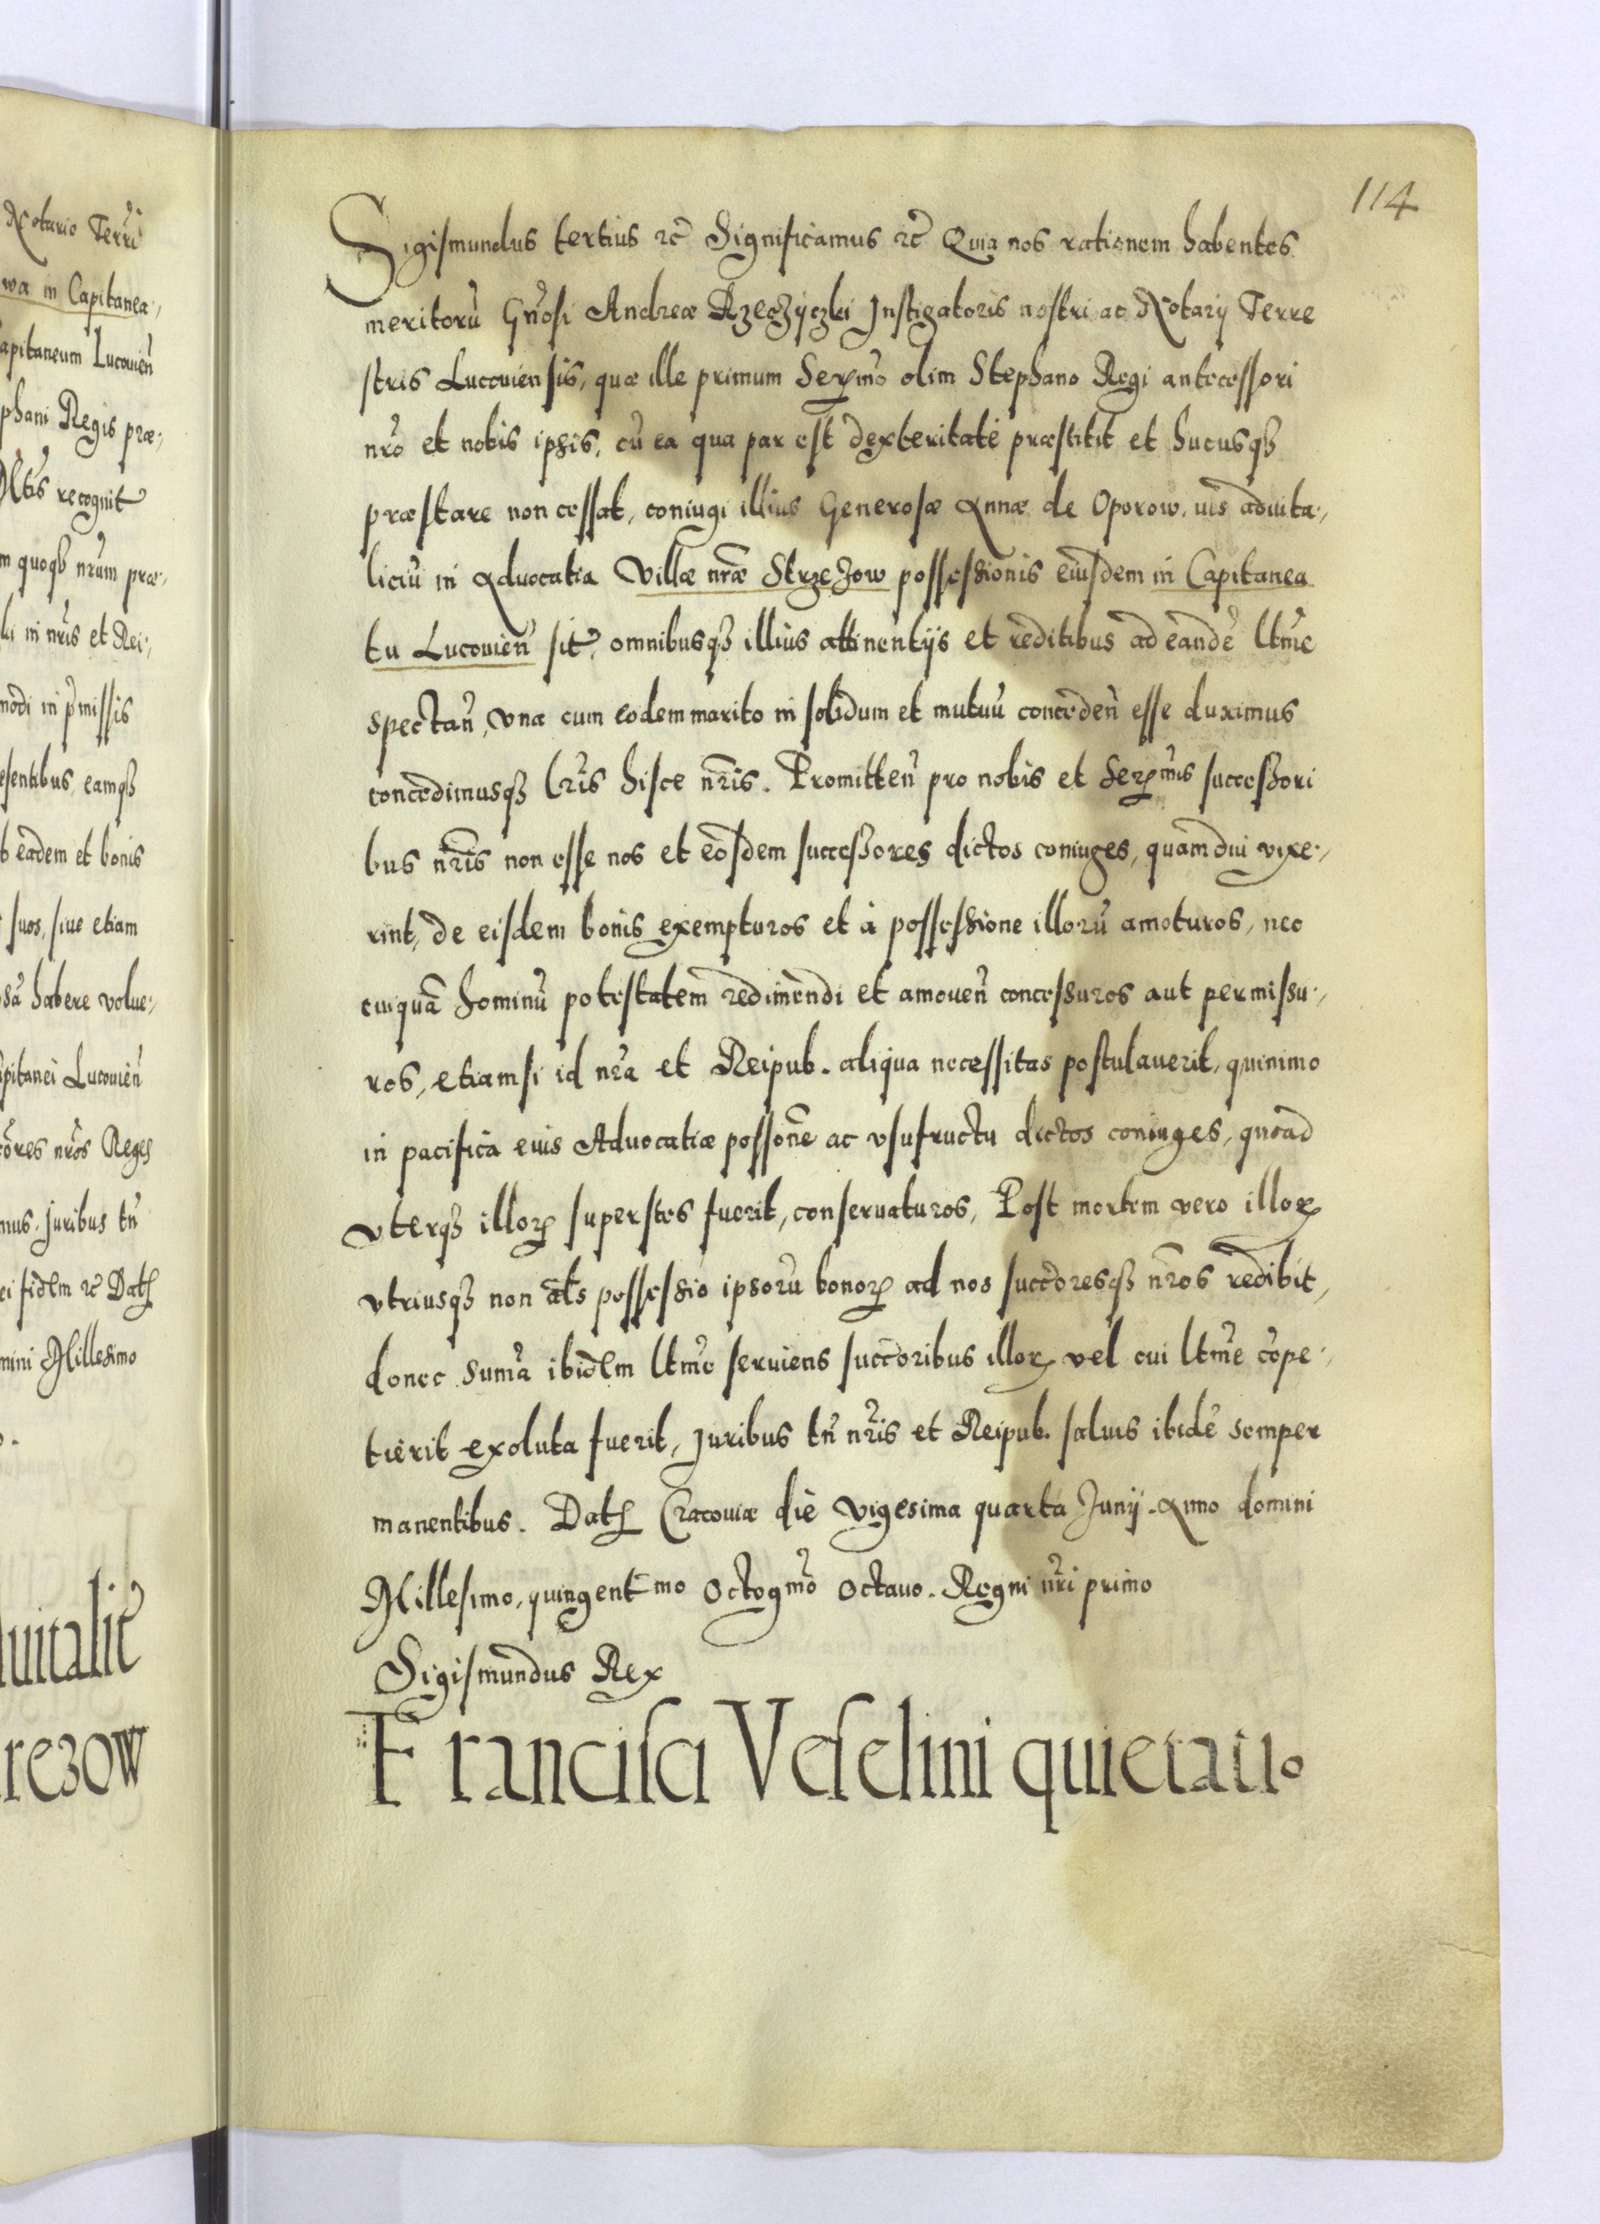 Notario Terrī
wa in Capitanea,
apitaneum Lucouień
phani Regis præ,
recognit
m quoqȝ nrūm præ,
in nrīs et Rei,
modi in pmissis
esentibus, eamqȝ
eādem et bonis
suos, siue etiam
habere volue,
apitanei Lucouień
nrōs Reges
mus, Juribus tñ
ei fidēm rc Datȝ
mini Millesimo
duitalit
rezow
114
Sigismundus tertius rc̄ Significamus rc̄ Quia nos rationem habentes
meritorū Gnōsi Andreæ Rzeczÿczki Instigatoris nostri ac Notarÿ Terre
stris Lucouiensis, quæ ille primum Serꝑmō olim Stephano Regi antecessori
nrō et nobis ipsis, cū ea qua par est dexteritate præstitit et hucusqȝ
præstare non cessat, coniugi illius Generosæ Annæ de Oporow, uīs aduita,
liciū in Aduocatia Villæ nrǣ Strzezow possessionis eiusdem in Capitanea
tu Lucouień sit, omnibusqȝ illius attinentÿs et reditibus ad eandē ltmē
spectań, vna cum eodem marito in solidum et mutuū concedeń esse duximus
concedimusqȝ lrīs hisce nrīs. Promitteń pro nobis et Serꝑmīs successori
bus nrīs non esse nos et eosdem successores dictos coniuges, quamdiu vixe,
rint, de eisdem bonis exempturos et à possessione illorū amoturos, nec
cuiquā hominū potestatem redimendi et amoueń concessuros aut permissu,
ros, etiamsi id nrā et Reipub. aliqua necessitas postulauerit, quinimo
in pacifica eius Aduocatiæ possōne ac vsufructu dictos coniuges, quoad
vterqȝ illorꝝ superstes fuerit, conseruaturos, Post mortem vero illorꝝ
vtriusqȝ non als possessio ipsorū bonorꝝ ad nos succōresqȝ nrōs redibit,
donec sumā ibidēm ltmē seruiens succōribus illorꝝ vel cui ltmē cōpe,
tierit exoluta fuerit, Juribus tñ nrīs et Reipub. saluis ibidē semper
manentibus. Datȝ Cracouiæ die vigesima quarta Junÿ. Anno domini
Millesimo, quingentmo Octogmō Octauo. Regni nrī primo
Sigismundus Rex
Francisci Veselini quietatio